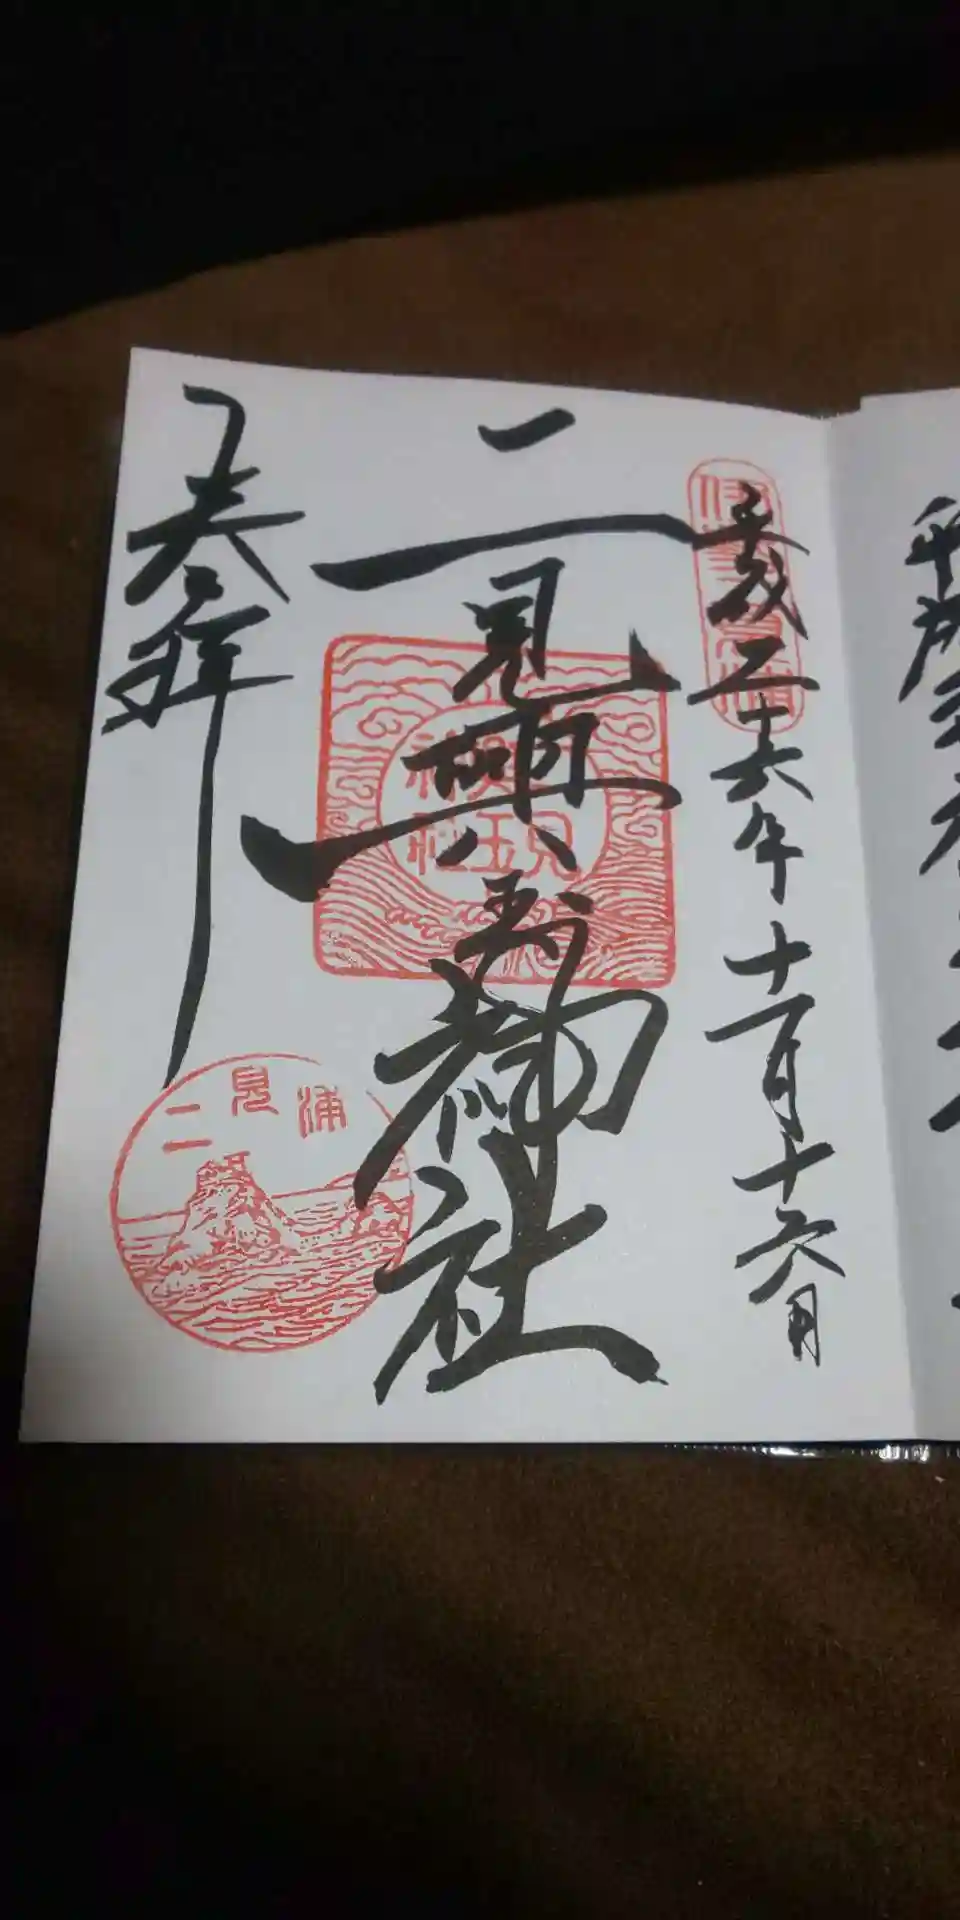 平成二十六年十一月十六日
二見興玉神社
奉拝
二見興玉神社
二見浦